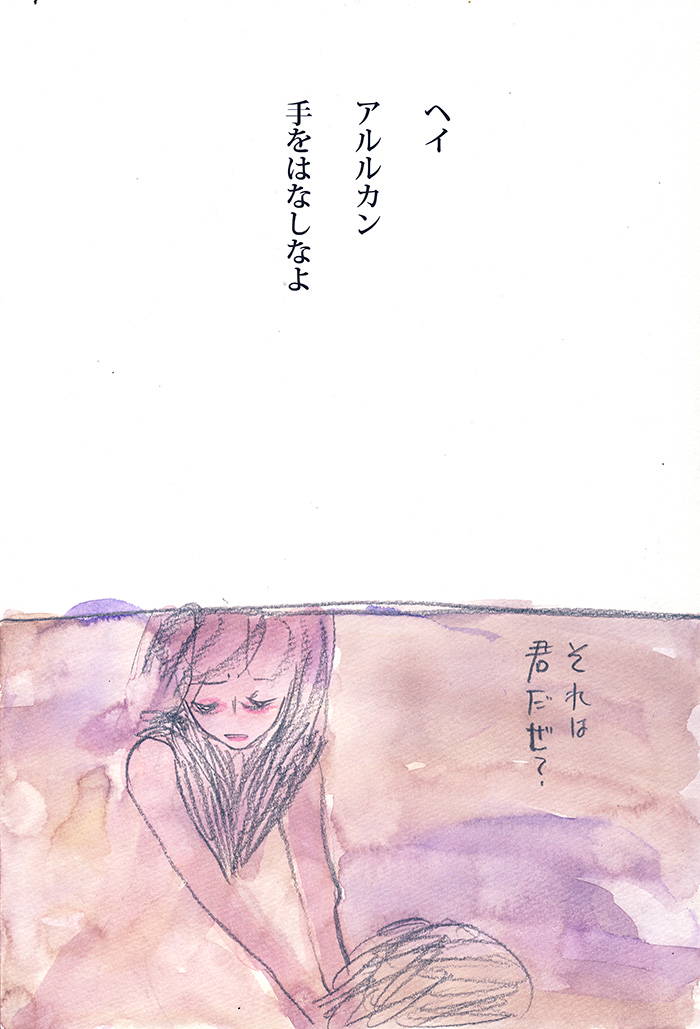 ヘイ
アルルカン
手をはなしなよ
それは
君だぜ?